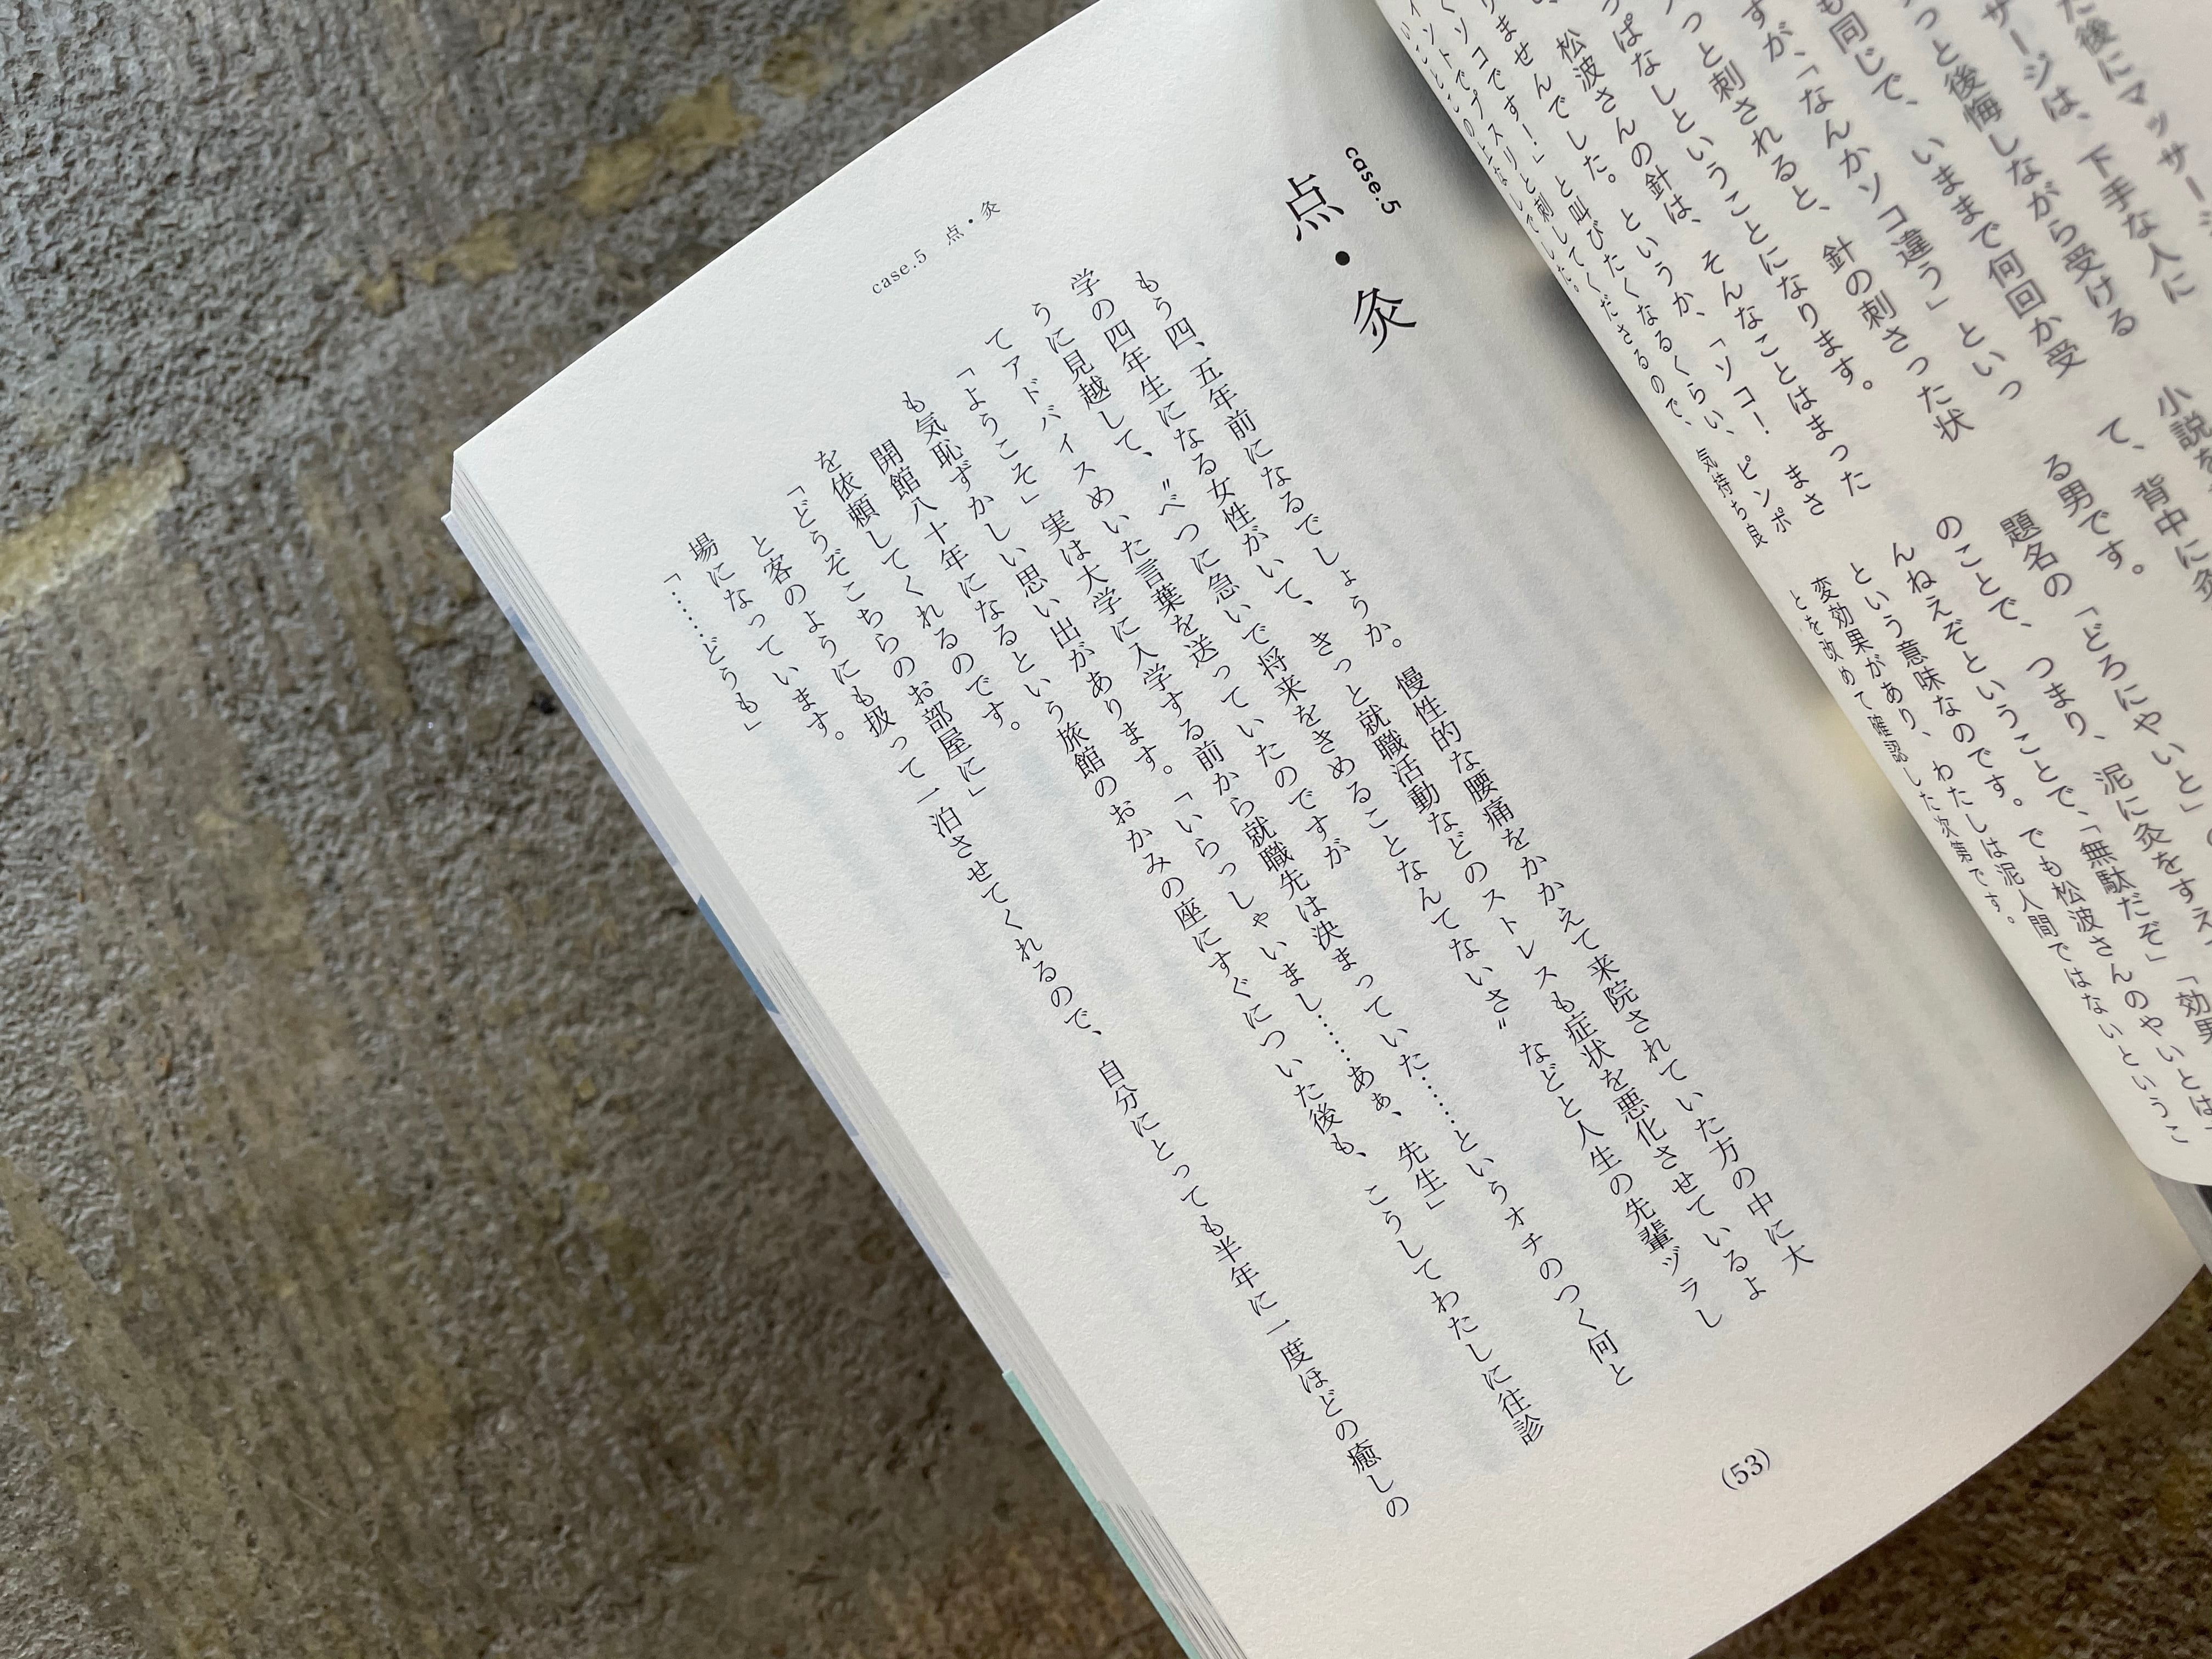 た後にマッサージ
サージは、下手な人に
っと後悔しながら受ける
も同じで、いままで何回か受
すが、「なんかソコ違う」といっ
っと刺されると、針の刺さった状
っぱなしということになります。
松波さんの針は、そんなことはまった
りませんでした。というか、「ソコ! まさ
くソコです!」と叫びたくなるくらい、ピンポ
イントでブスリと刺してくださるので、気持ち良
いことこのうえなしでした。
小説を
て、背中に灸
る男です。
題名の「どろにやいと」
のことで、つまり、泥に灸をすえ
んねえぞということで、「無駄だぞ」「効果
という意味なのです。でも松波さんのやいとは
変効果があり、わたしは泥人間ではないというこ
とを改めて確認した次第です。
case.5
点・灸
もう四、五年前になるでしょうか。慢性的な腰痛をかかえて来院されていた方の中に大
学の四年生になる女性がいて、きっと就職活動などのストレスも症状を悪化させているよ
うに見越して、〝べつに急いで将来をきめることなんてないさ〟などと人生の先輩ヅラし
てアドバイスめいた言葉を送っていたのですが
「ようこそ」実は大学に入学する前から就職先は決まっていた……というオチのつく何と
も気恥ずかしい思い出があります。「いらっしゃいまし……あぁ、先生」
開館八十年になるという旅館のおかみの座にすぐについた後も、こうしてわたしに往診
を依頼してくれるのです。
「どうぞこちらのお部屋に」
と客のようにも扱って一泊させてくれるので、自分にとっても半年に一度ほどの癒しの
場になっています。
「……どうも」
case.5 点・灸
(53)